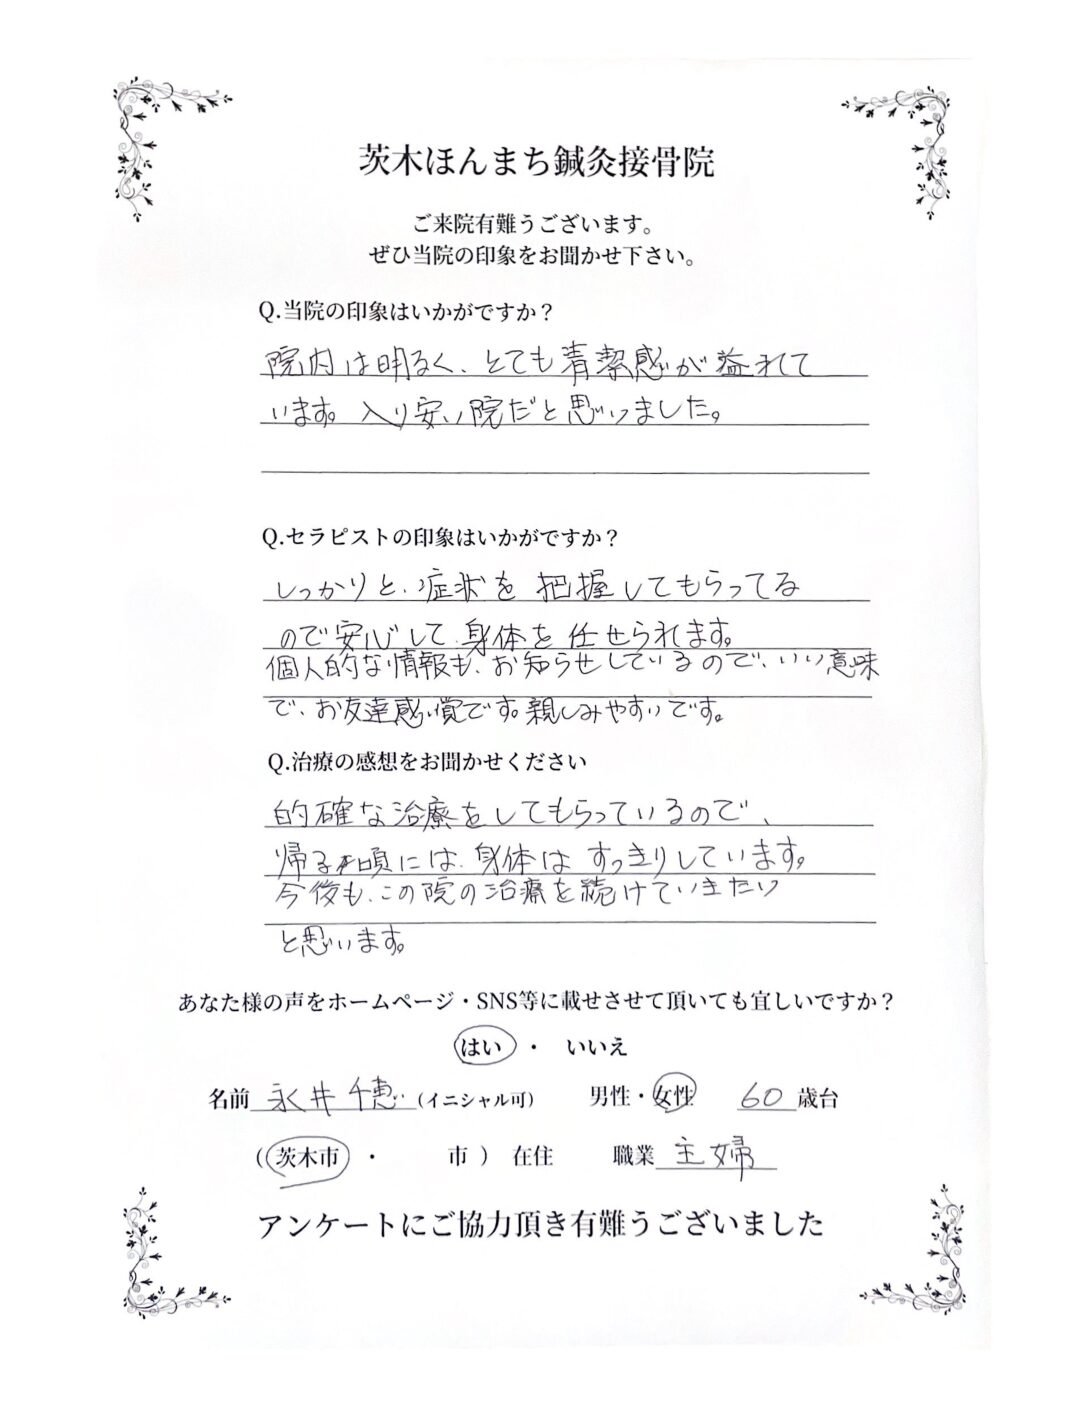 茨木ほんまち鍼灸接骨院
ご来院有難うございます。
ぜひ当院の印象をお聞かせ下さい。
Q.当院の印象はいかがですか？
院内は明るく、とても清潔感が溢れて
います。入り安い院だと思いました。
Q.セラピストの印象はいかがですか？
しっかりと、症状を把握してもらってる
ので安心して、身体を任せられます。
個人的な情報も、お知らせしているので、いい意味
で、お友達感覚です。親しみやすいです。
Q.治療の感想をお聞かせください
的確な治療をしてもらっているので、
帰る頃には、身体はすっきりしています。
今後も、この院の治療を続けていきたい
と思います。
あなた様の声をホームページ・SNS等に載せさせて頂いても宜しいですか？
はい ・ いいえ
名前 永井千恵 (イニシャル可) 男性・女性 60 歳台
（茨木市 ・ 市 ） 在住 職業 主婦
アンケートにご協力頂き有難うございました